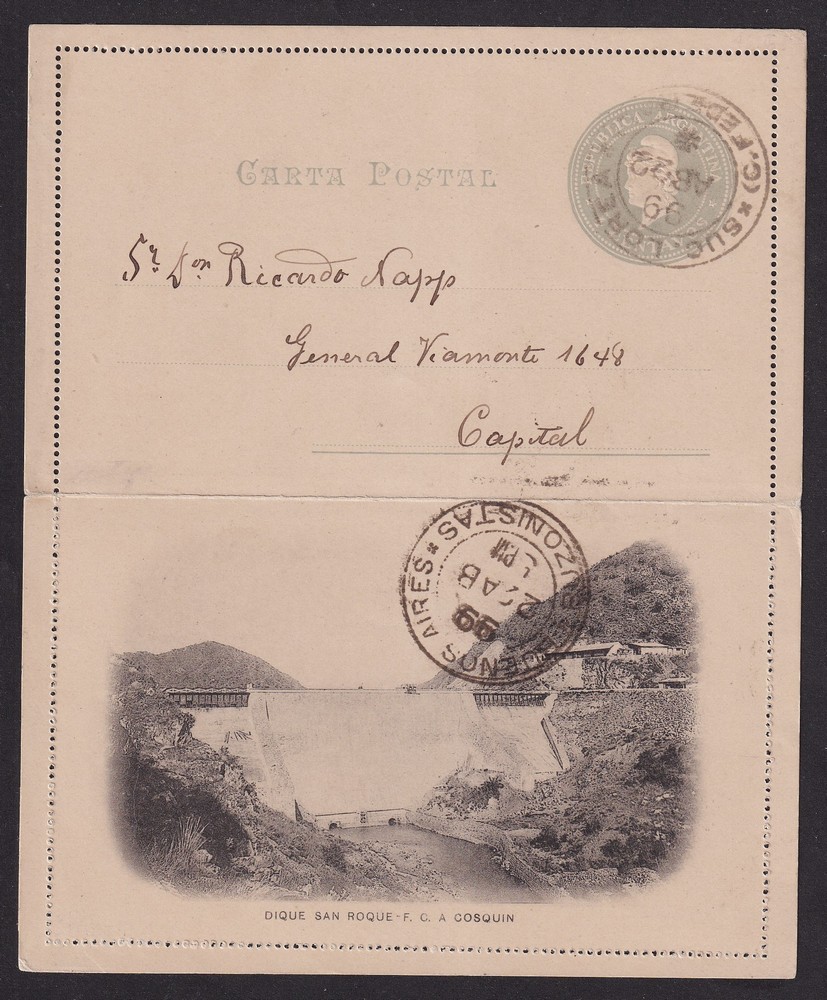 REPUBLICA ARGENTINA
CARTA POSTAL
SUC. LOREA * (C. FED.L)
22 AB 99
Sr. Don Ricardo Napp
General Viamonte 1648
Capital
BUENOS AIRES * BUZONISTAS
22 AB
PM
99
DIQUE SAN ROQUE - F. C. A COSQUIN